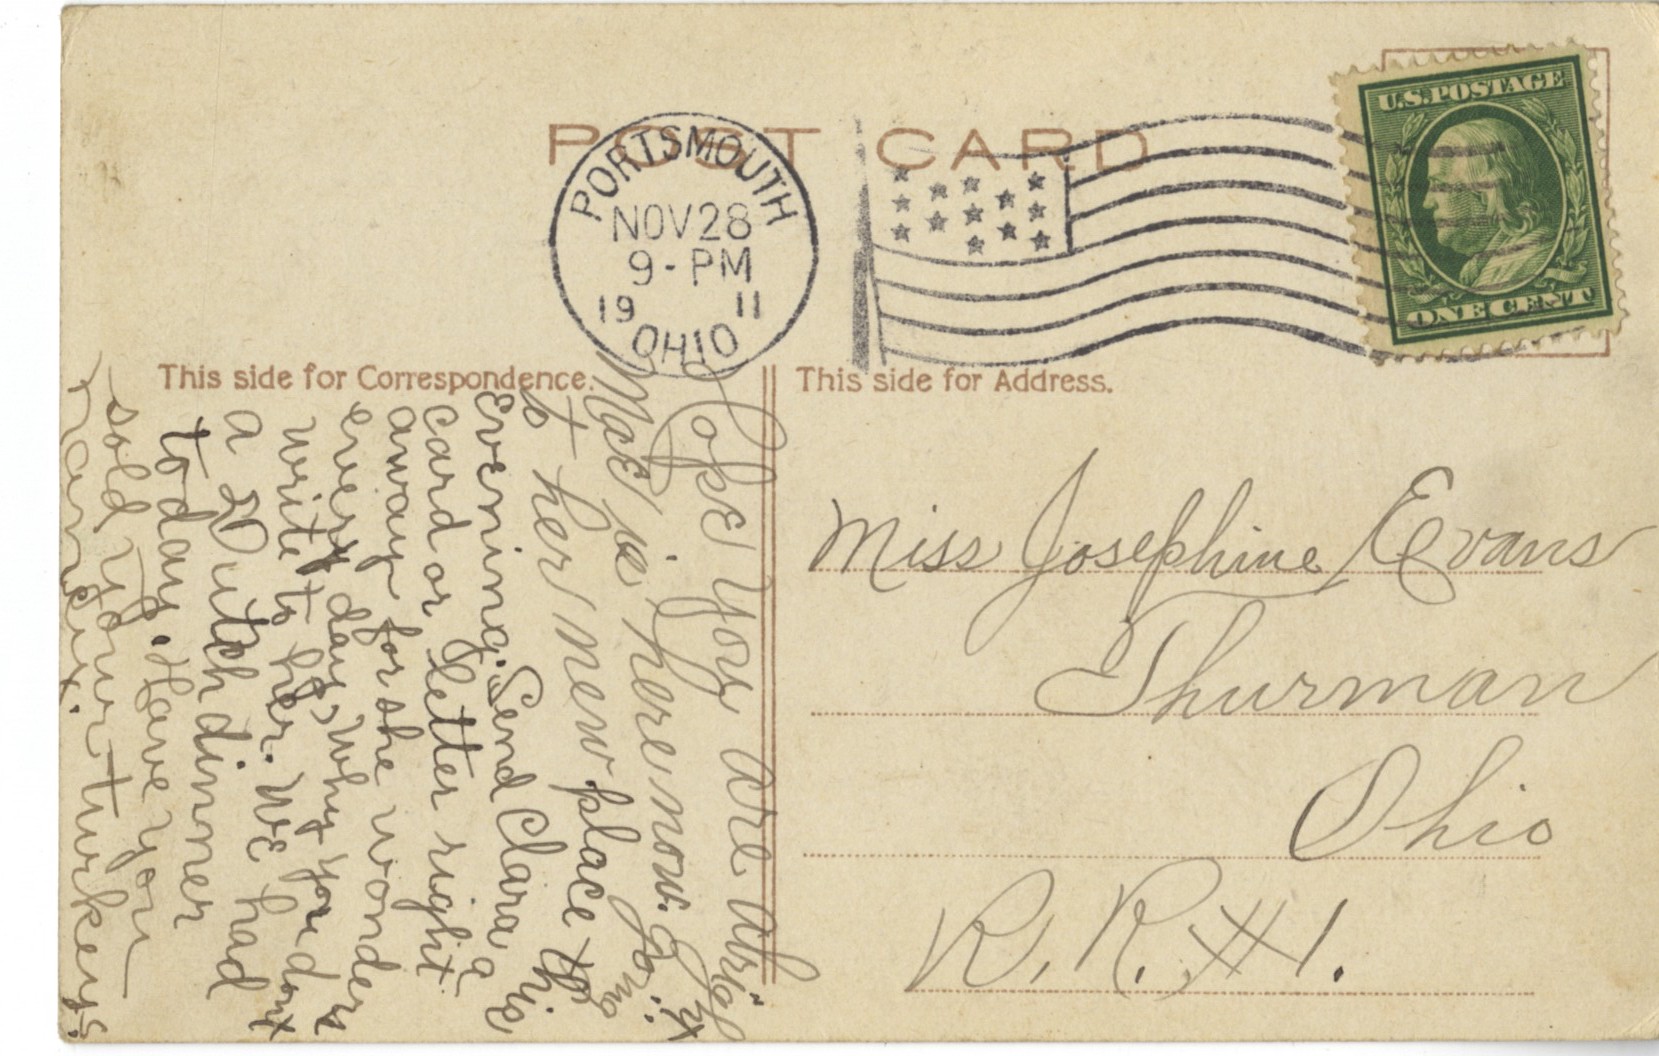 POST CARD
PORTSMOUTH
NOV 28
9-PM
19 11
OHIO
U.S. POSTAGE
ONE CENT
This side for Correspondence.
This side for Address.
Hope you are alright
Mae is here now. Going
to her new place this
Evening. Send Clara a
card or letter right
away for she wonders
every day why you dont
write to her. We had
a Dutch dinner
today. Have you
sold your turkeys.
Miss Josephine Evans
Thurman
Ohio
R.R. #1.